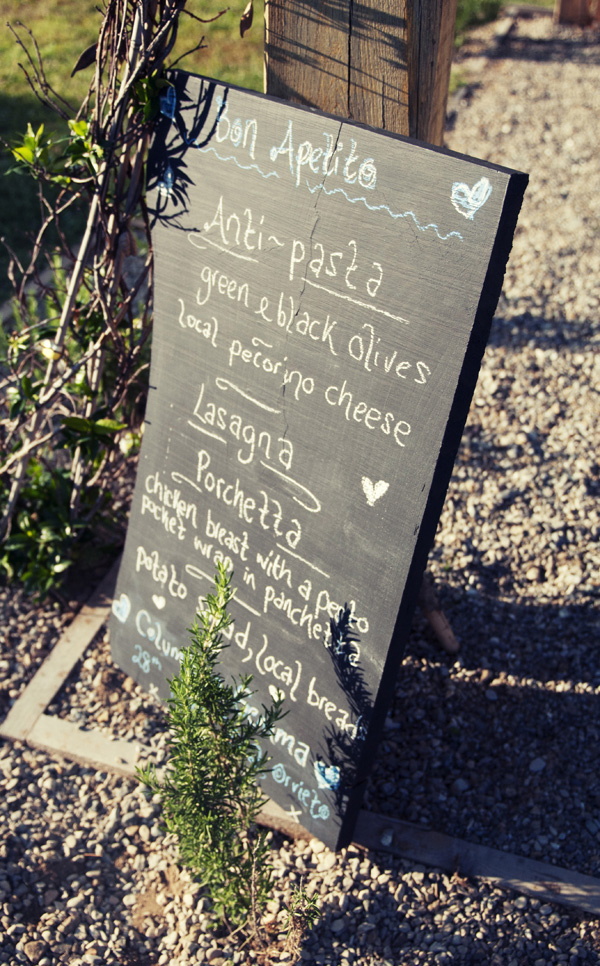 Bon Apetito
Anti~pasta
green e black olives
local pecorino cheese
Lasagna
Porchetta
chicken breast with a
pocket wrap in panchetta
potato local bread
Orvieto